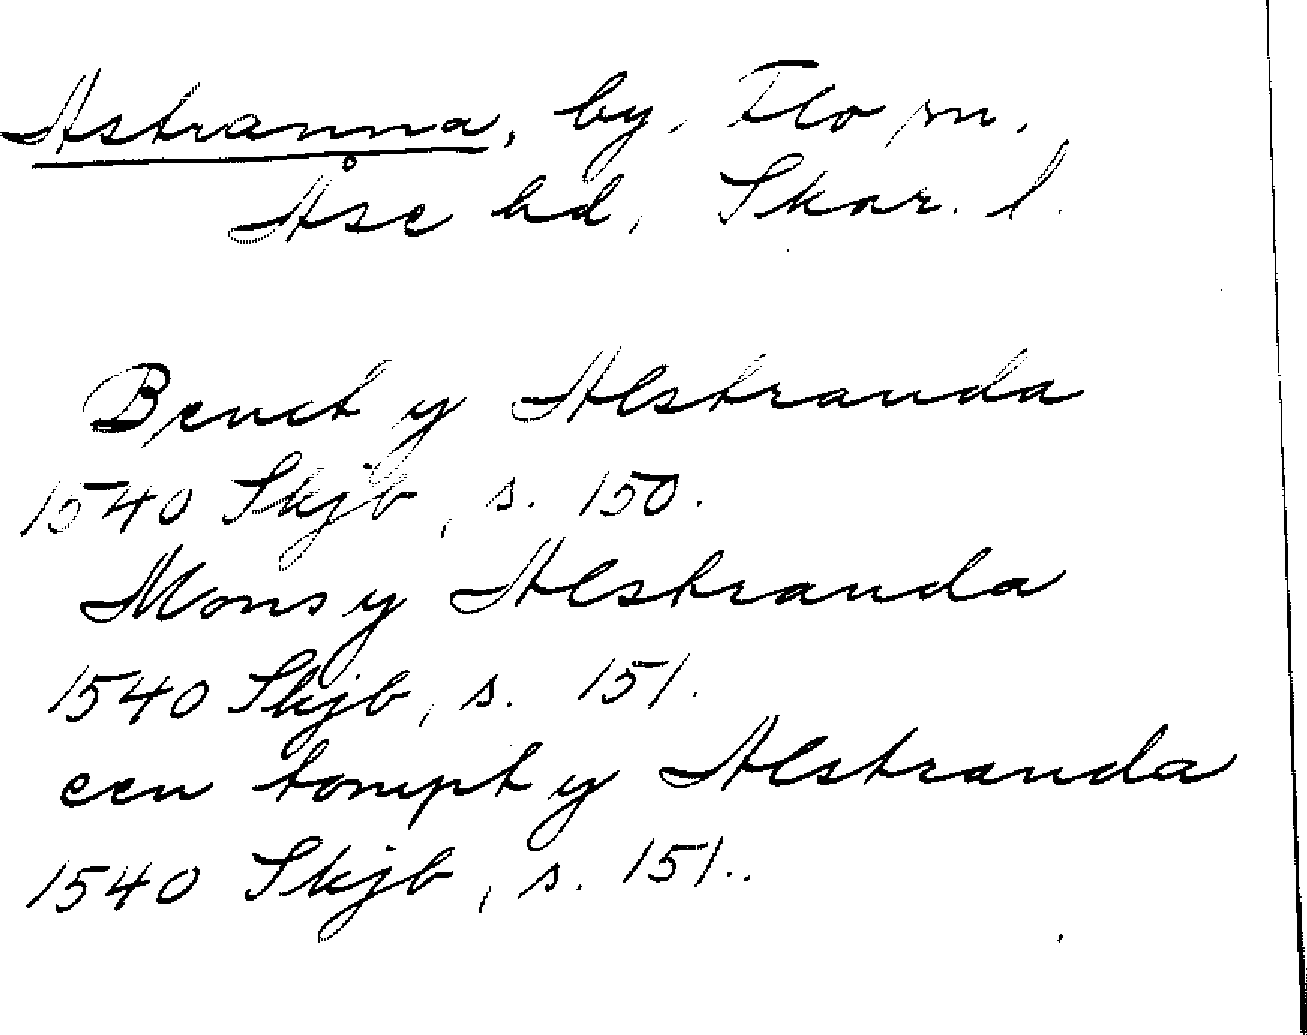 Astranna, by, Flo sn,
Åse hd, Skar. l.
Benct y Alstranda
1540 Skjb, s. 150.
Mons y Alstranda
1540 Skjb, s. 151.
een tompt y Alstranda
1540 Skjb, s. 151..